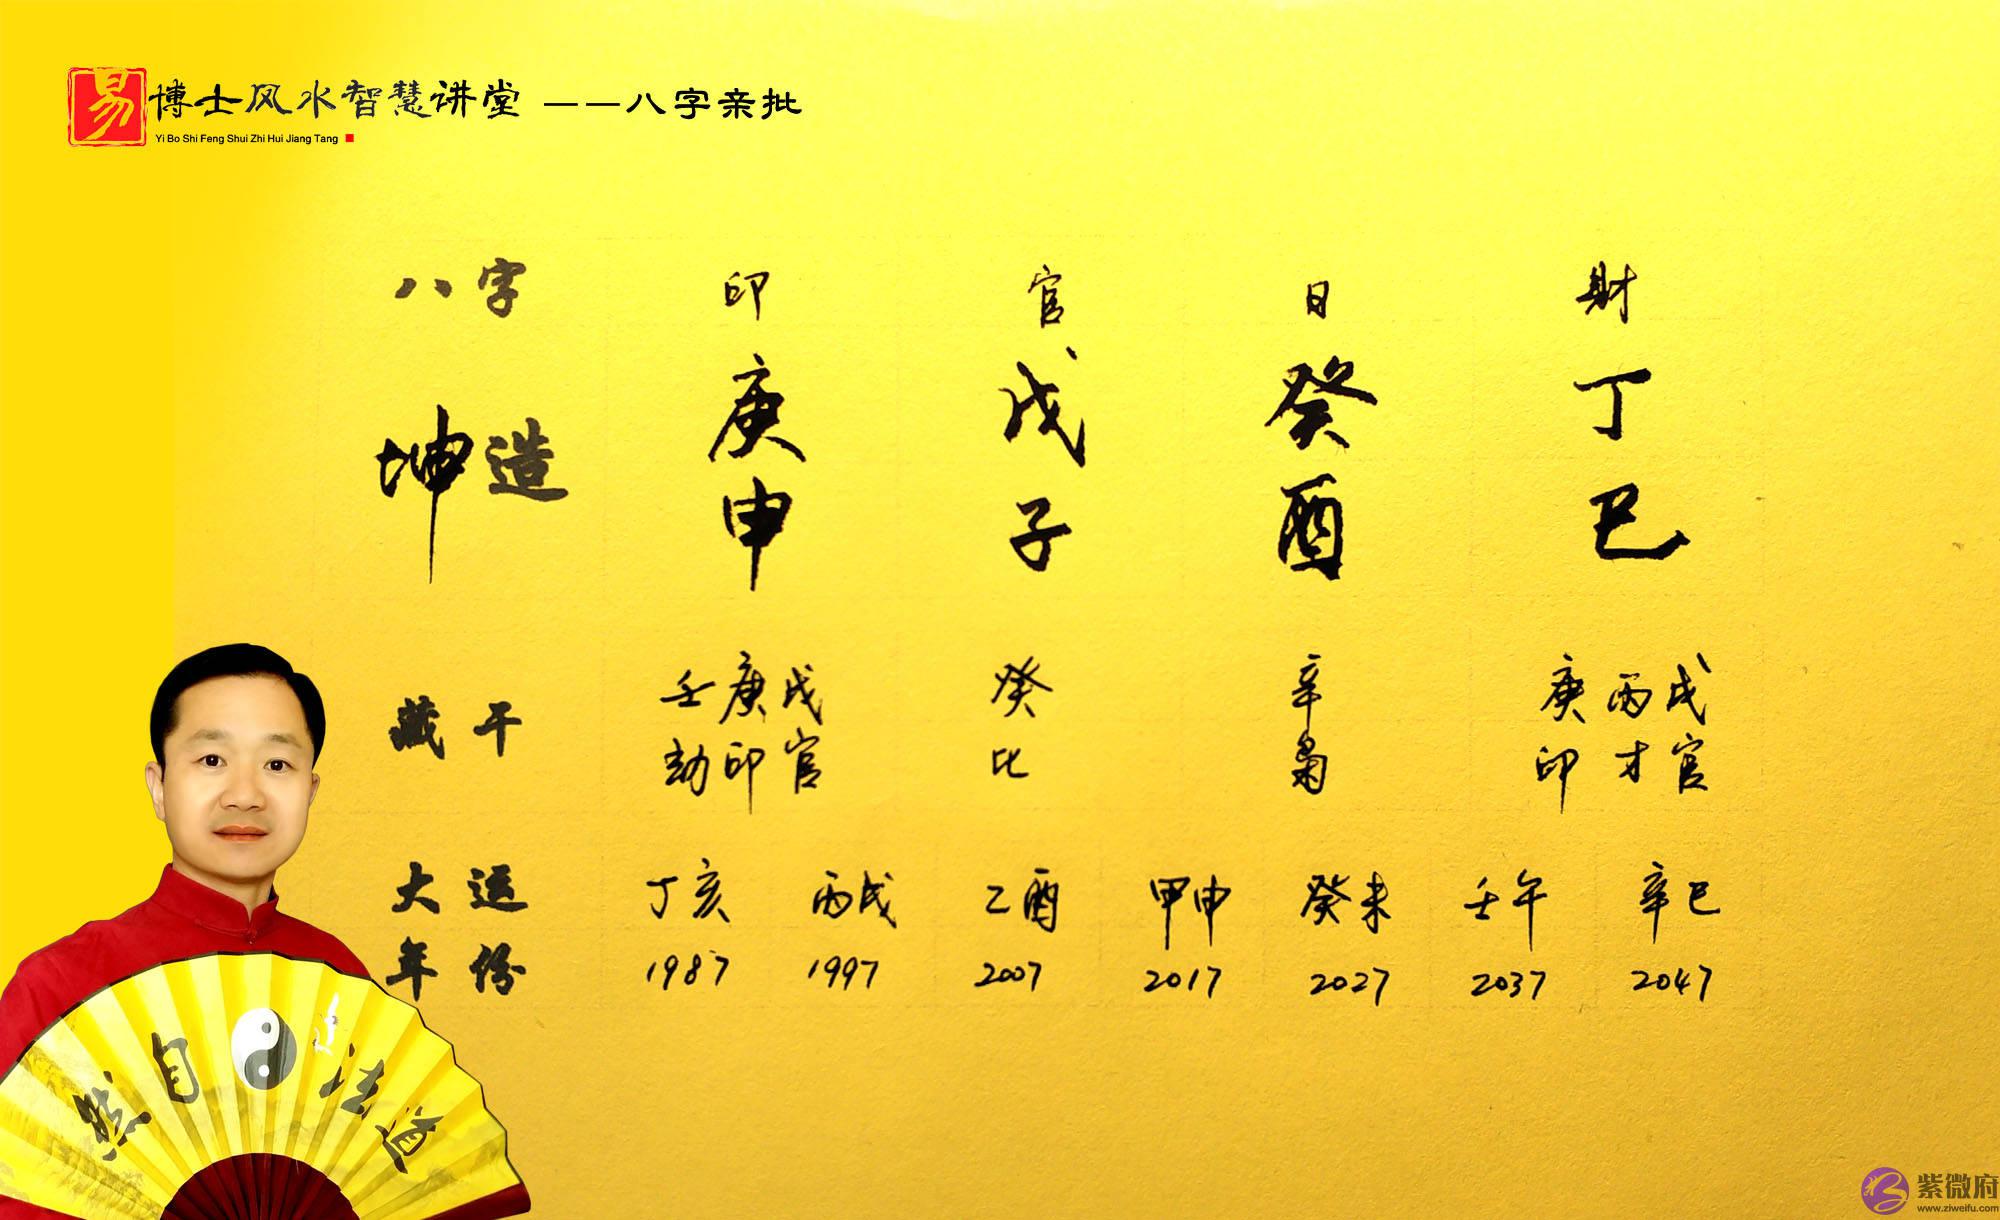 易博士风水智慧讲堂 ——八字亲批
Yi Bo Shi Feng Shui Zhi Hui Jiang Tang
八字 印 官 日 财
坤造 庚 戊 癸 丁
申 子 酉 巳
藏干 壬庚戊 癸 辛 庚丙戊
劫印官 比 枭 印才官
大运 丁亥 丙戌 乙酉 甲申 癸未 壬午 辛巳
年份 1987 1997 2007 2017 2027 2037 2047
道法自然
紫微府
www.ziweifu.com